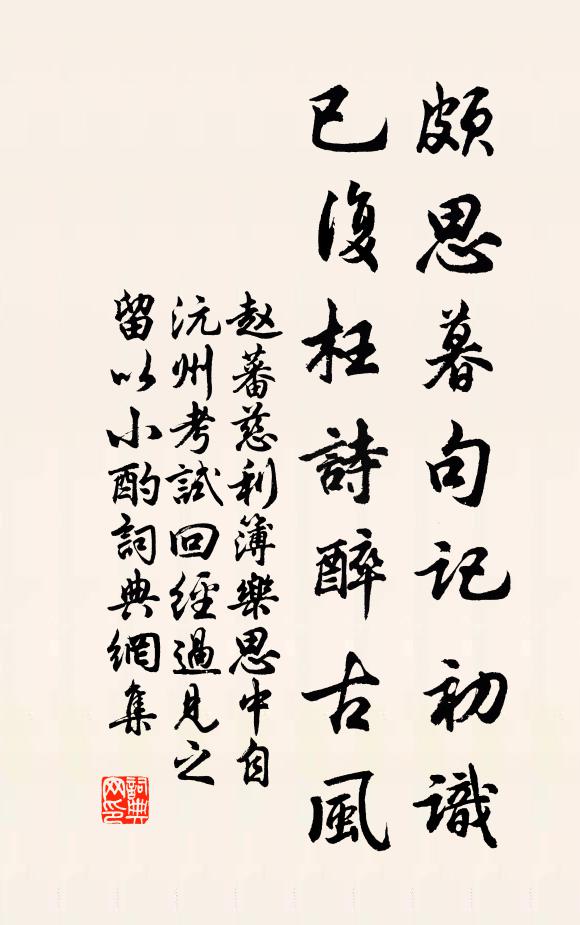 頗思暮句記初識
已復枉詩醉古風
赵蕃慈利簿樂思中自
沅州考試回經過見之
留以小酌詞典網集
詞典网印